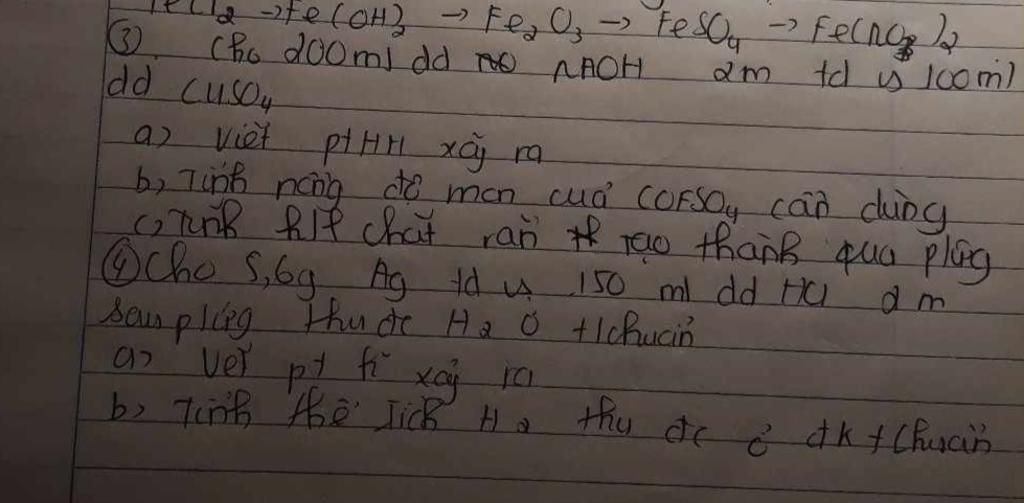 FeCl2 → Fe(OH)2 → Fe2O3 → FeSO4 → Fe(NO3)2
③ Cho 200ml dd NAOH 2m td vs 100ml
dd CuSO4
a) Viết ptHH xảy ra
b, Tính nồng độ mcn cuả COFSO4 cần dùng
c) Tính klt chất rắn tạo thành qua pứng
④ Cho 5,6g Ag td vs 150 ml dd HCl 2m
sau pứng thu đc H2 ở t/chuẩn
a) Viết pt xảy ra
b, Tính thể tích H2 thu đc ở đk t/chuẩn